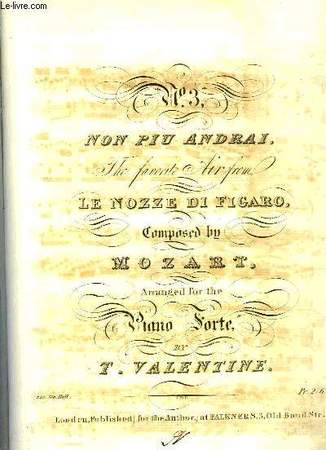 www.le-livre.com
No. 3.
NON PIU ANDRAI,
The favorite Air from
LE NOZZE DI FIGARO,
Composed by
MOZART,
Arranged for the
Piano Forte,
BY
T. VALENTINE.
Ent. Sta. Hall.
Pr. 2/6
London, Published for the Author, at FALKNERS, 3, Old Bond Str.